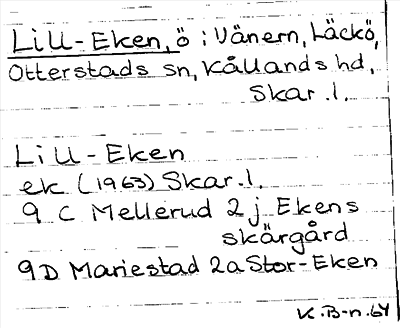 Lill-Eken, ö i Vänern, Läckö,
Otterstads sn, Kållands hd,
Skar.l.
Lill-Eken
ek (1963) Skar.l.
9 C Mellerud 2j Ekens
skärgård
9D Mariestad 2a Stor-Eken
K.B-n.64